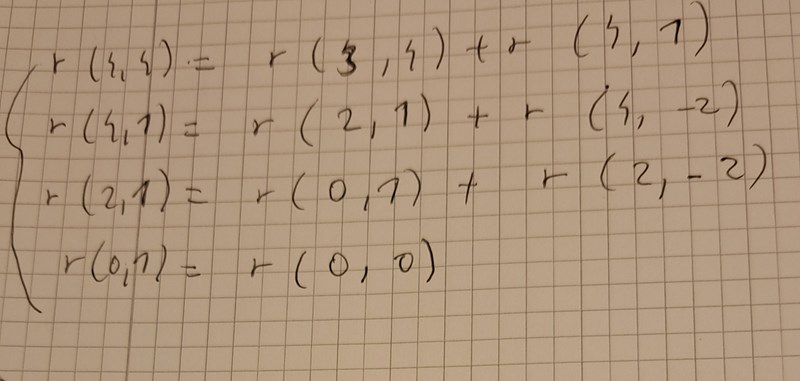 r (4,4) = r (3,4) + r (4,1)
r (4,1) = r (2,1) + r (4,-2)
r (2,1) = r (0,1) + r (2,-2)
r (0,1) = r (0,0)